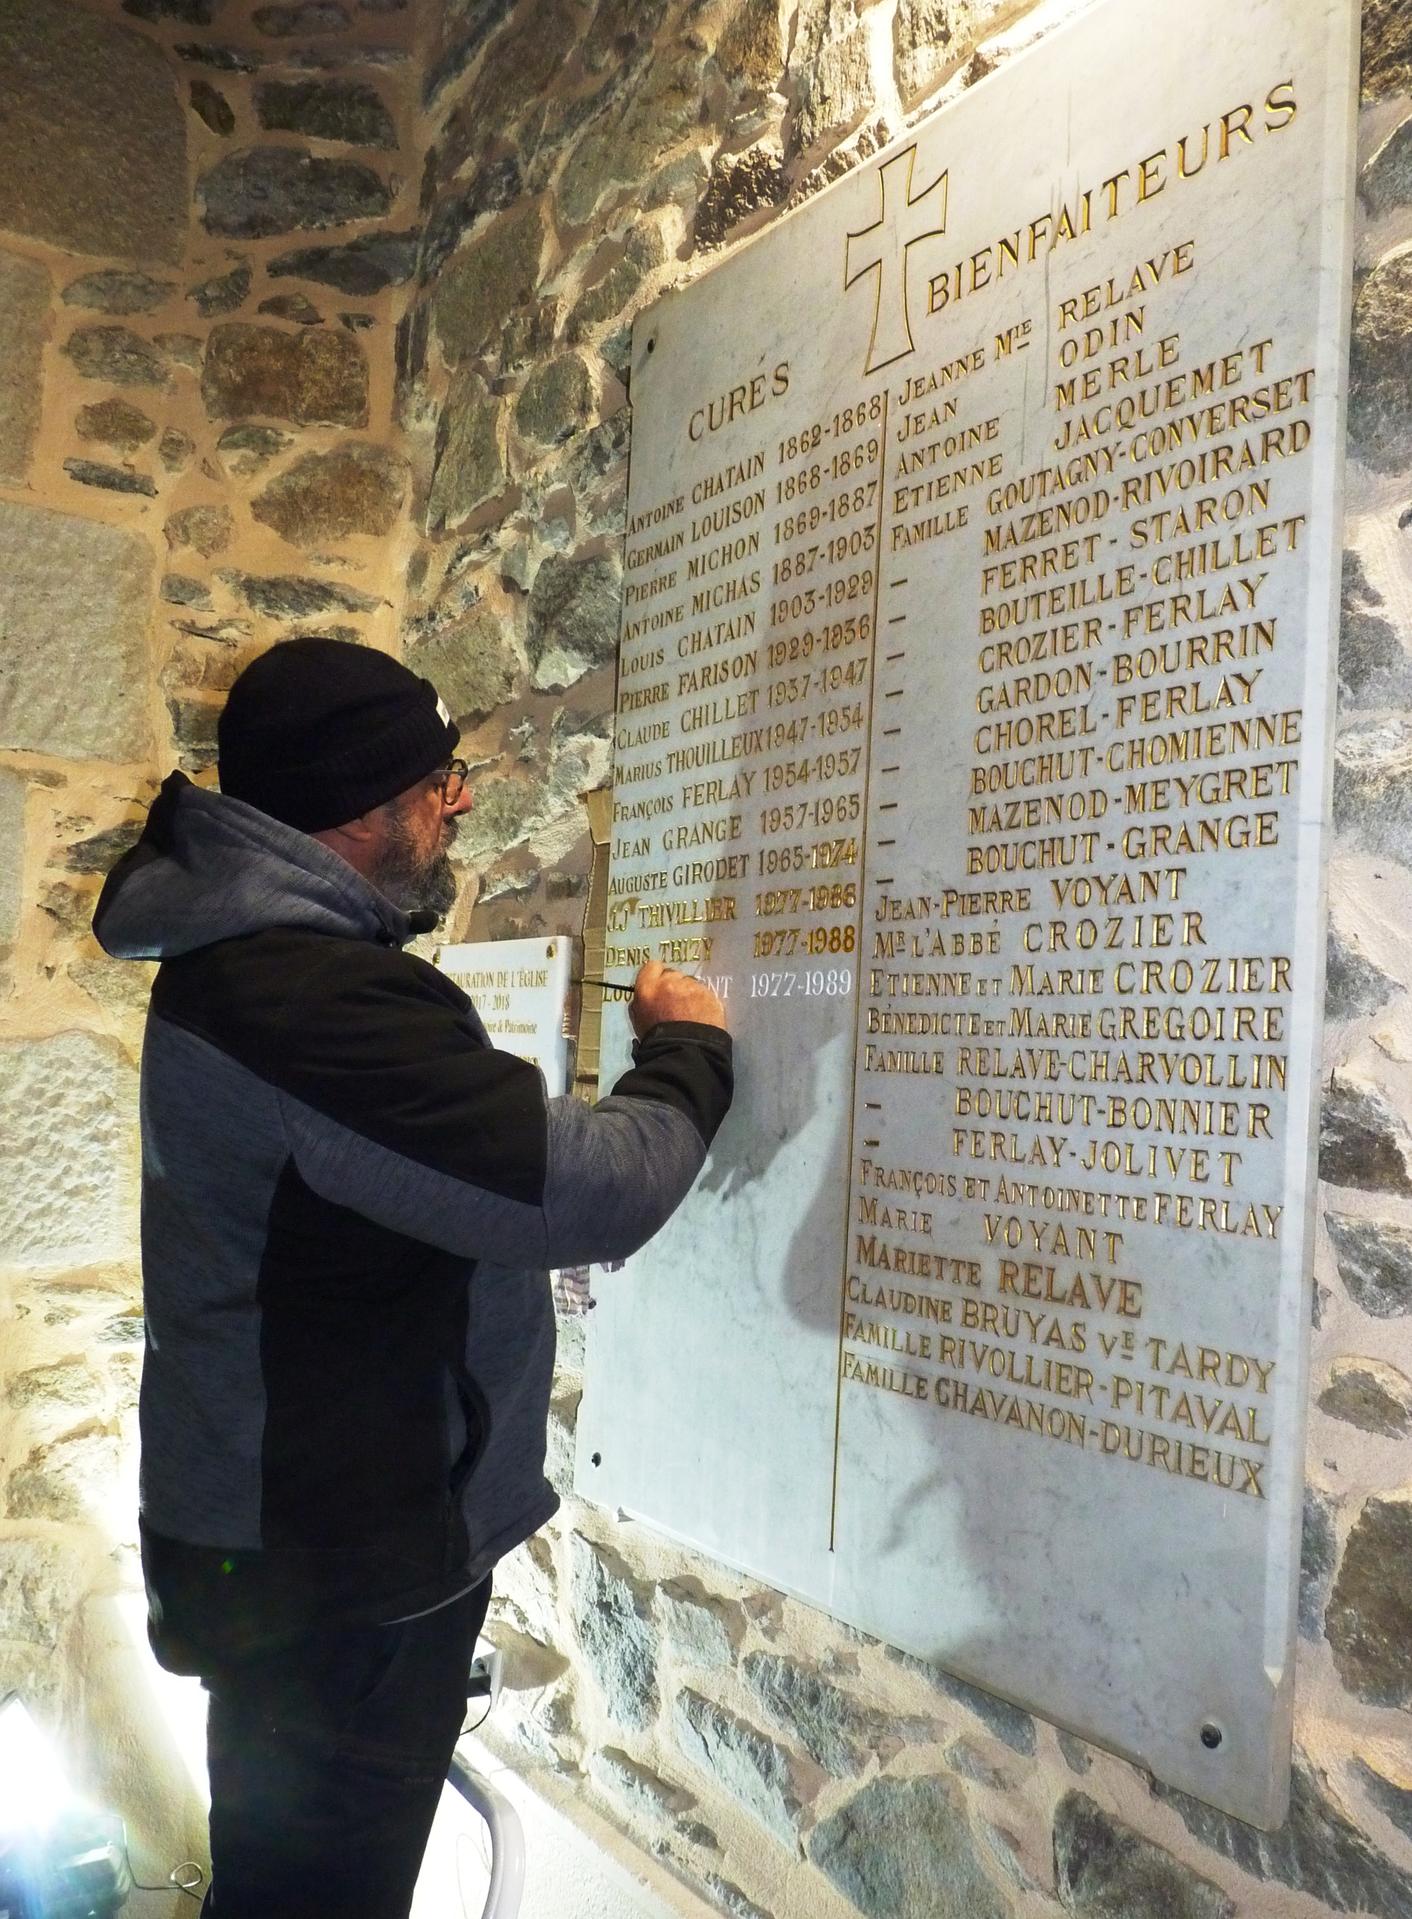 CURÉS
ANTOINE CHATAIN 1862-1868
GERMAIN LOUISON 1868-1869
PIERRE MICHON 1869-1887
ANTOINE MICHAS 1887-1903
LOUIS CHATAIN 1903-1929
PIERRE FARISON 1929-1936
CLAUDE CHILLET 1937-1947
MARIUS THOUILLEUX 1947-1954
FRANÇOIS FERLAY 1954-1957
JEAN GRANGE 1957-1965
AUGUSTE GIRODET 1965-1974
J.J THIVILLIER 1977-1986
DENIS THIZY 1977-1988
1977-1989
BIENFAITEURS
JEANNE MIE RELAVE
JEAN ODIN
ANTOINE MERLE
ETIENNE JACQUEMET
FAMILLE GOUTAGNY-CONVERSET
MAZENOD-RIVOIRARD
– FERRET-STARON
– BOUTEILLE-CHILLET
– CROZIER-FERLAY
– GARDON-BOURRIN
– CHOREL-FERLAY
– BOUCHUT-CHOMIENNE
– MAZENOD-MEYGRET
– BOUCHUT-GRANGE
JEAN-PIERRE VOYANT
MR L'ABBÉ CROZIER
ETIENNE ET MARIE CROZIER
BÉNEDICTE ET MARIE GREGOIRE
FAMILLE RELAVE-CHARVOLLIN
– BOUCHUT-BONNIER
– FERLAY-JOLIVET
FRANÇOIS ET ANTOINETTE FERLAY
MARIE VOYANT
MARIETTE RELAVE
CLAUDINE BRUYAS VE TARDY
FAMILLE RIVOLLIER-PITAVAL
FAMILLE CHAVANON-DURIEUX
DE L'ÉGLISE
2018
& Patrimoine